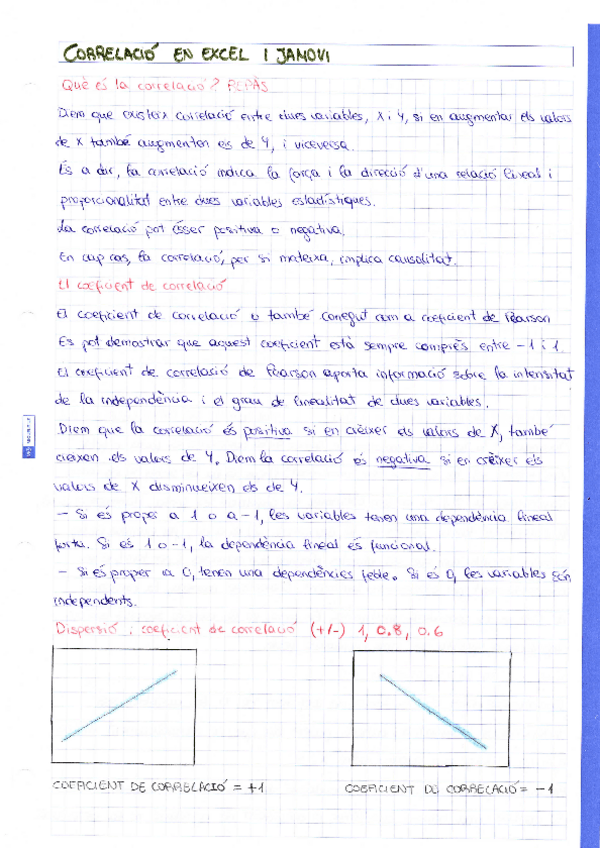 CORRELACIÓ EN EXCEL I JAMOVI
Què és la correlació? REPÀS
Diem que existeix correlació entre dues variables, X i Y, si en augmentar els valors
de X també augmenten es de Y, i viceversa.
És a dir, la correlació indica la força i la direcció d'una relació lineal i
proporcionalitat entre dues variables estadístiques.
La correlació pot ésser positiva o negativa.
En cap cas, la correlació, per si mateixa, implica causalitat.
El coeficient de correlació
El coeficient de correlació o també conegut com a coeficient de Pearson
Es pot demostrar que aquest coeficient està sempre comprès entre -1 i 1.
El coeficient de correlació de Pearson aporta informació sobre la intensitat
de la independència i el grau de linealitat de dues variables.
Diem que la correlació és positiva si en créixer els valors de X, també
creixen els valors de Y. Diem la correlació és negativa si en créixer els
valors de X disminueixen els de Y.
- Si és proper a 1 o a -1, les variables tenen una dependència lineal
forta. Si és 1 o -1, la dependència lineal és funcional.
- Si és proper a 0, tenen una dependències feble. Si és 0, les variables són
independents.
Dispersió i coeficient de correlació (+/-) 1, 0.8, 0.6
COEFICIENT DE CORRELACIÓ = +1
COEFICIENT DE CORRELACIÓ = -1